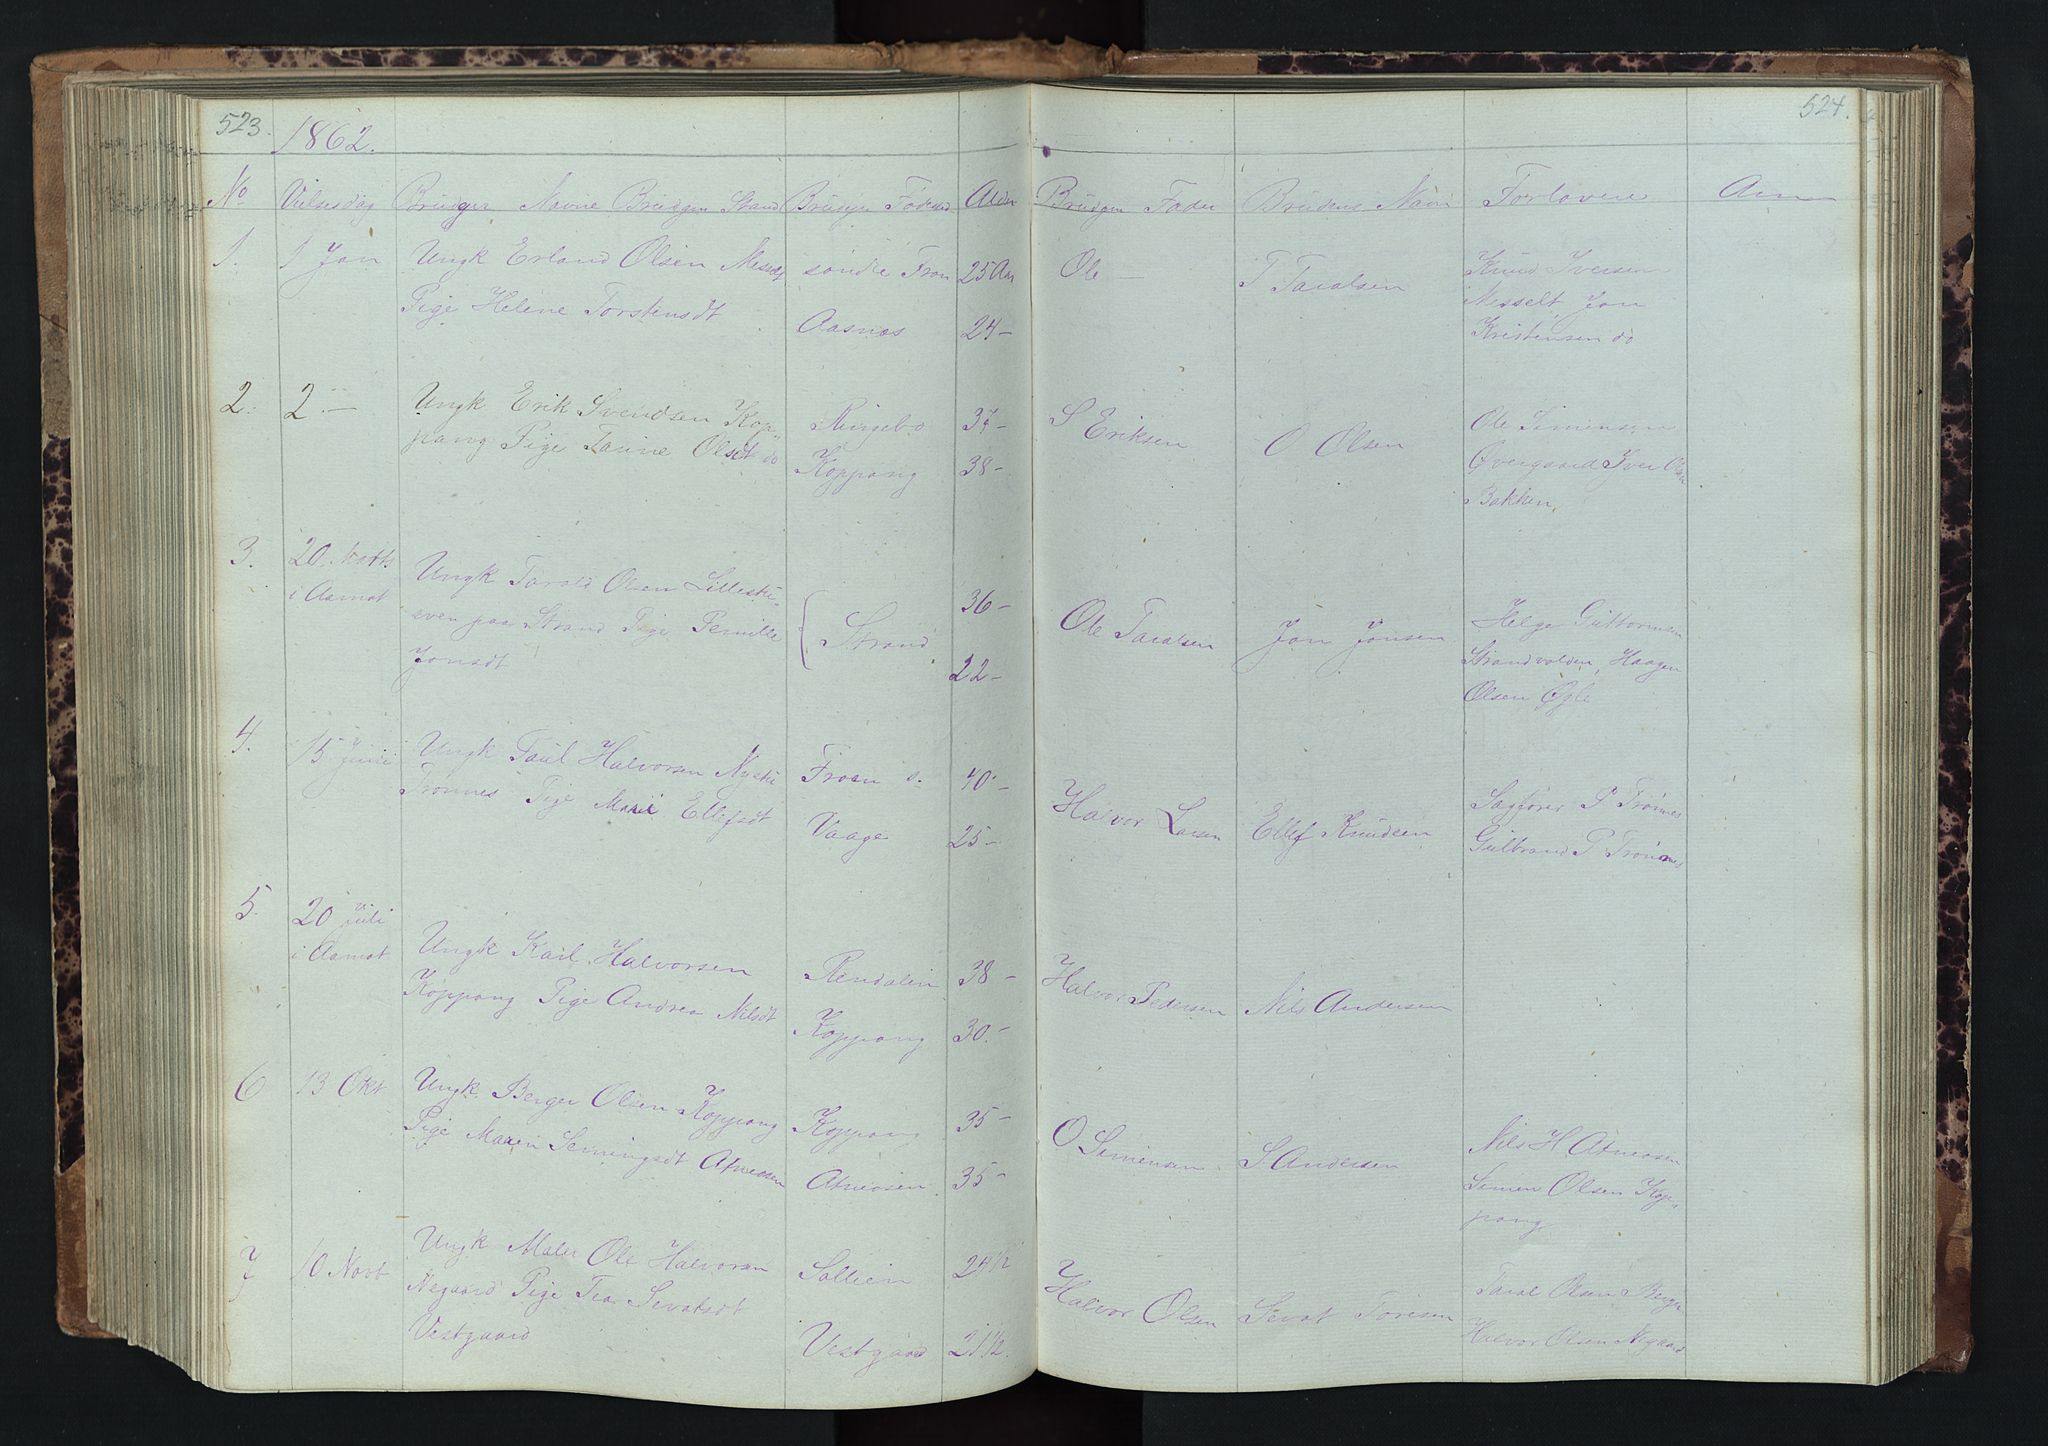 523.
524.
1862.
No Vielsesdag Brudgms Navne Brudgms Stand Brudgms Fødested Alder Brudgms Fader Brudens Navn Forlovere Anm
1. 1 Jan Ungk Erland Olsen Messelt søndre Fron 25 Aar Ole — T Taralsen Knud Iversen
Pige Helene Torstensdt Aasnæs 24 — Messelt, Jon
Kristensen do
2. 2 — Ungk Erik Svendsen Kop-
pang Pige Olsdt do Ringebo 37 — S Eriksen O Olsen Ole Simensen
Koppang 38 — Øvergaard Iver Olsen
Bakken
3. 20 Marts Ungk Tarald Olsen
i Aamot paa Strand Pige Pernille Strand 36 — Ole Taralsen Jon Jonsen Helge Guttormsen
Jonsdt 22 — Strandvolden, Haagen
Olsen Øgle
4. 15 Juni Ungk Paul Halvorsen
Trønnes Pige Marie Ellefsdt Froen s. 40 — Halvor Larsen Ellef Knudsen Sagfører P Trønnes
Vaage 25 — Gulbrand P Trønnes
5. 20 Juli
i Aamot Ungk Karl Halvorsen Rendalen 38 — Halvor Pedersen Nils Andersen
Koppang Pige Andrea Nilsdt Koppang 30 —
6 13 Okt Ungk Berger Olsen Koppang Koppang 35 — O Simensen S Andersen Nils H Atneosen
Pige Maren Semingsdt Atneosen Atneosen 35 — Simen Olsen Kop-
pang
7 10 Novb Ungk Maler Ole Halvorsen Sollien 24 1/2 Halvor Olsen Sevat Toresen Taral Olsen Berger
Negaard Pige Tea Sevatsdt Halvor Olsen Negaard
Vestgaard Vestgaard 21 1/2